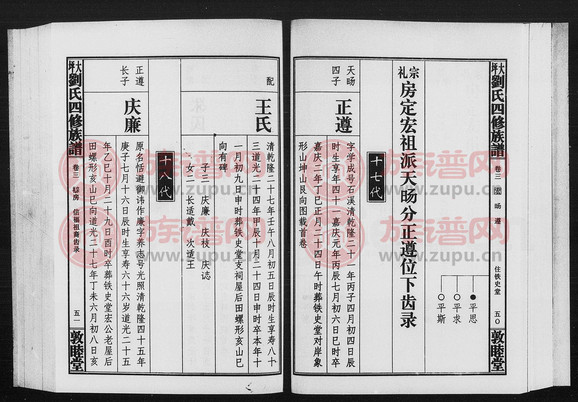 大坪劉氏四修族譜
卷三
旸遵
住铁史堂
五〇
敦睦堂
平恩
平求
平斯
宗礼房定宏祖派天旸分正遵位下齿录
十七代
天旸四子
正遵
字学成号石溪清乾隆二十一年丙子四月初九日
时生享年四十一岁嘉庆元年丙辰七月初六日巳时卒
嘉庆二年丁巳正月二十四日午时葬铁史堂对岸象
形山坤山艮向图载首卷
配
王氏
清乾隆二十七年壬午八月初五日辰时生享寿八十
三道光二十四年甲辰十月二十四日申时卒本年十
一月初九日申时葬铁史堂支祠屋后田螺形亥山巳
向有碑
子三 庆廉 庆枝 庆诚
女二 长适戴 次适王
十八代
正遵长子
庆廉
原名悟遵御讳作廉字养志号光照清乾隆四十五年
庚子七月十六日辰时生享寿六十六岁道光二十五
年乙巳十月二十九日酉时卒葬铁史堂宏公老屋后
田螺形亥山巳向道光二十七年丁未六月初八日亥
大坪劉氏四修族譜
卷三
信福祖裔齿录
五一
敦睦堂
族谱网
www.zupu.cn
族谱网
www.zupu.cn